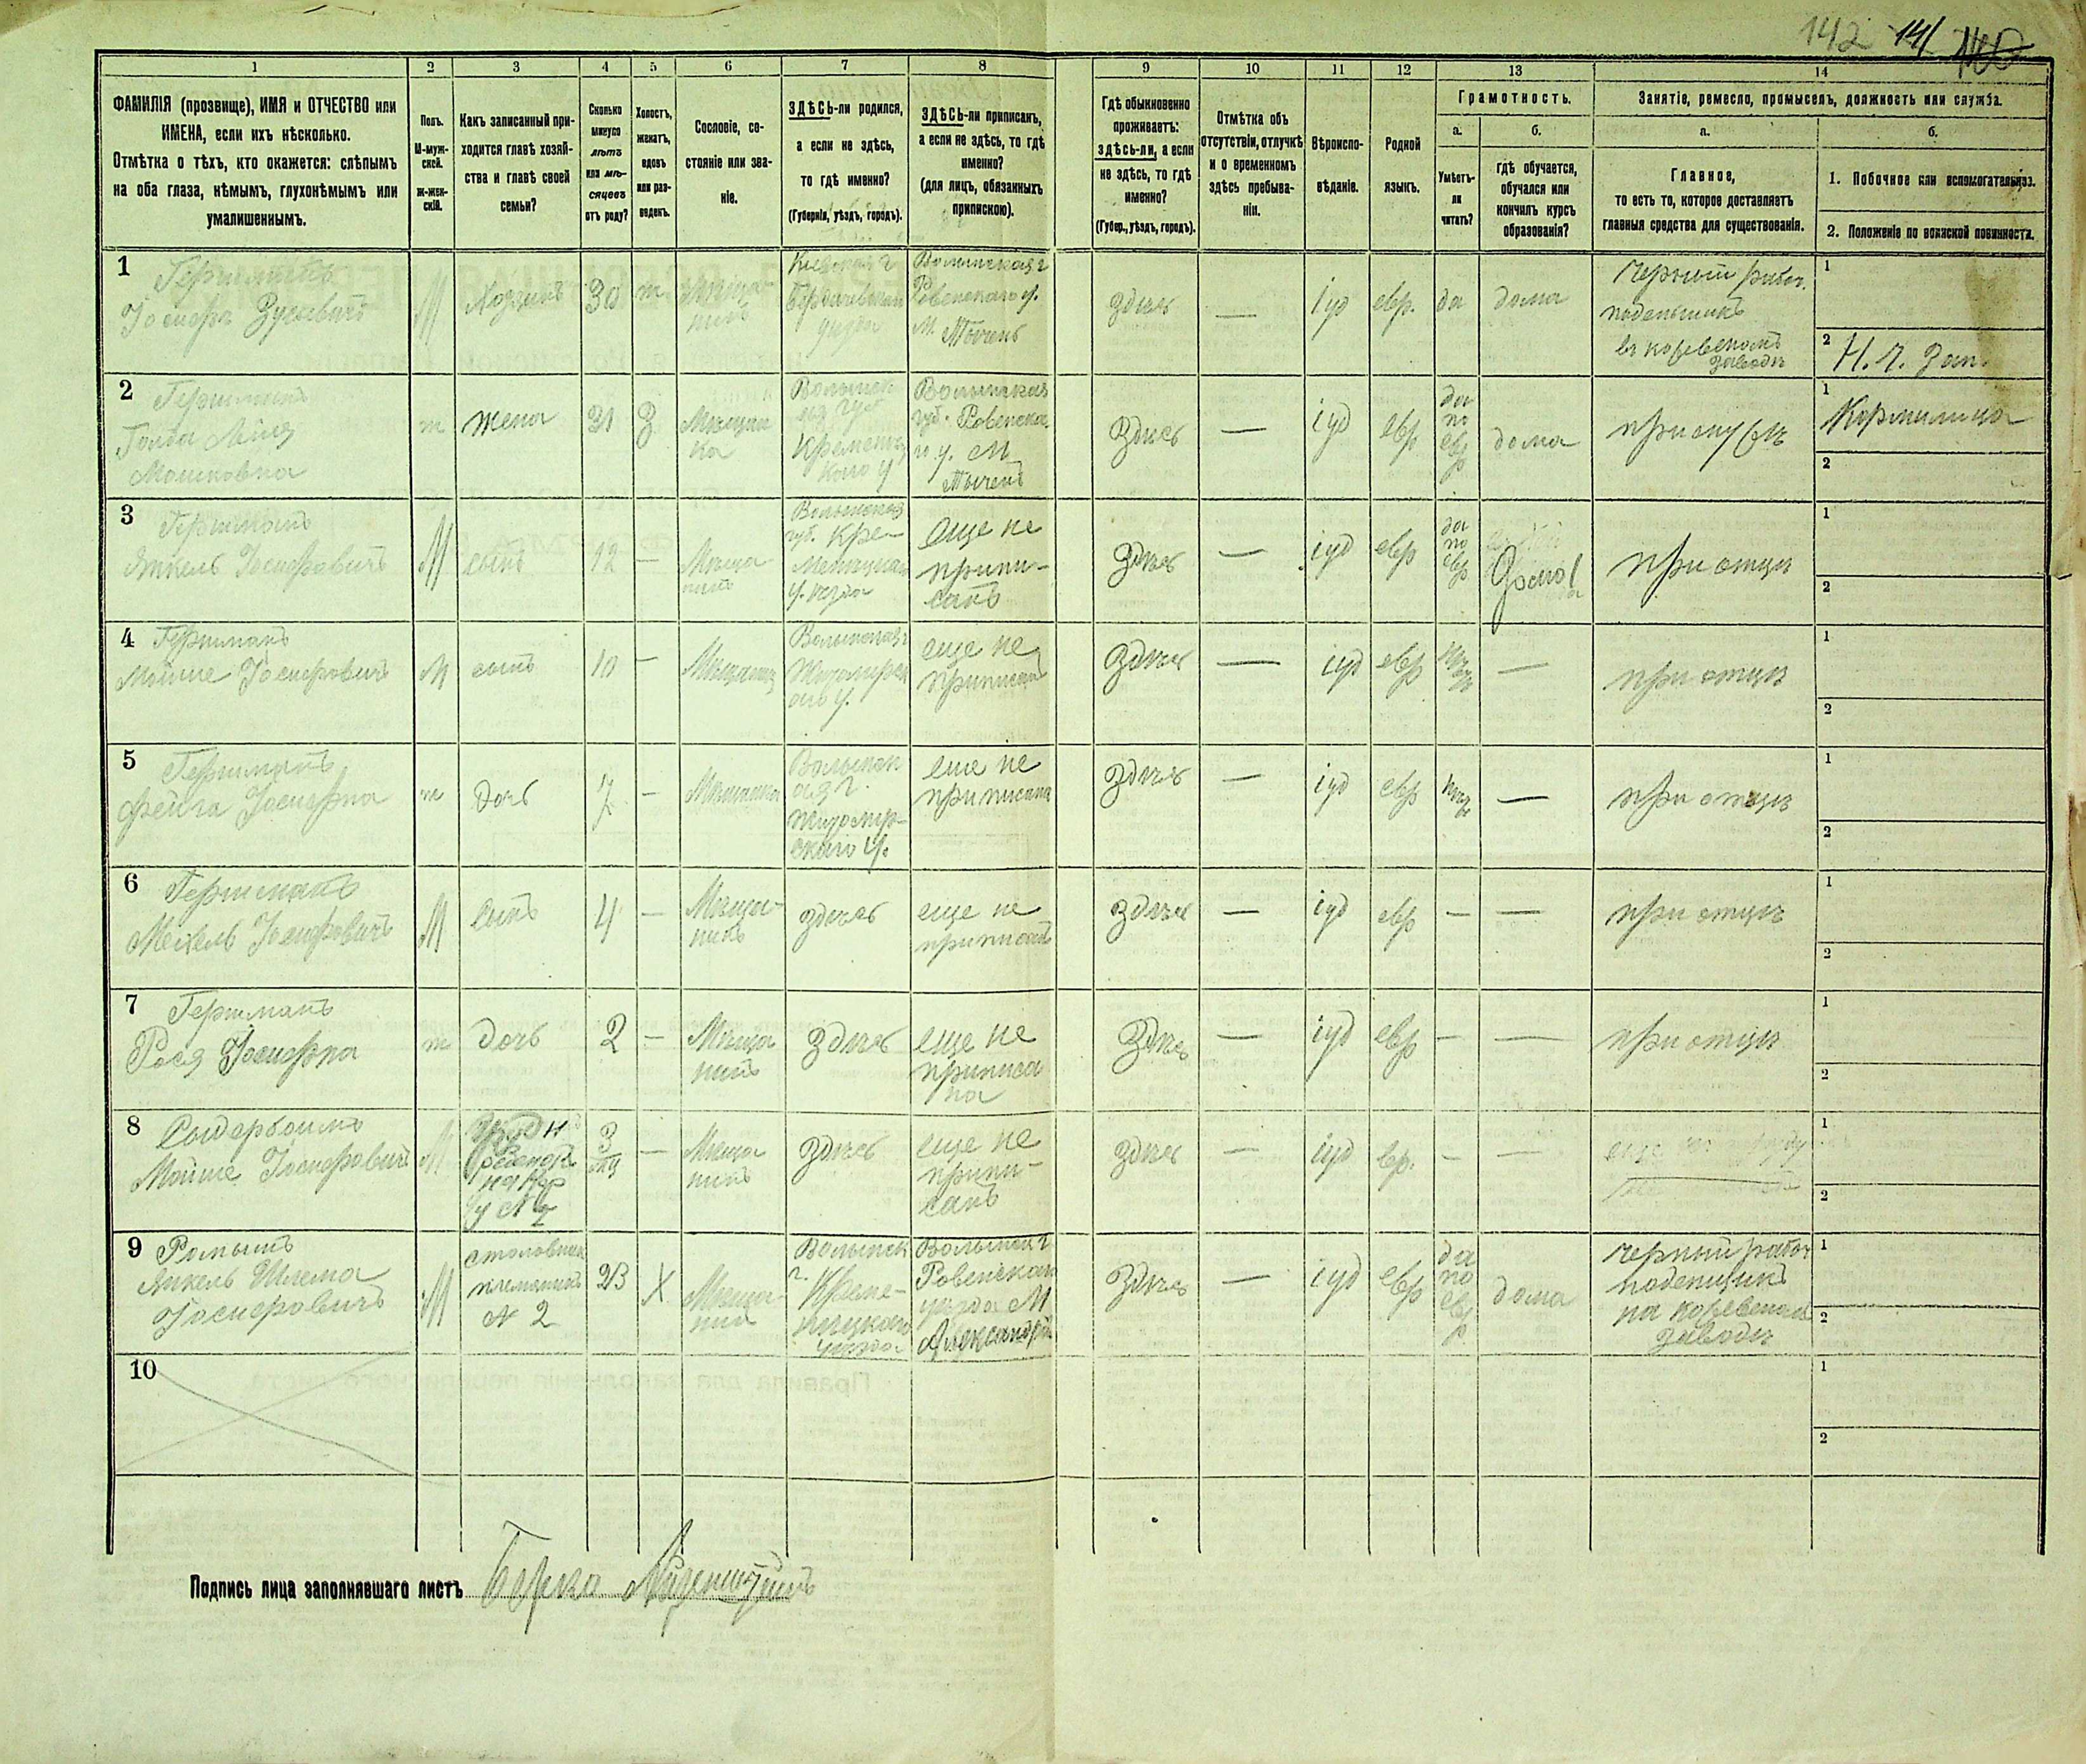 142 141 140
1 2 3 4 5 6 7 8 9 10 11 12 13 14
ФАМИЛІЯ (прозвище), ИМЯ и ОТЧЕСТВО или
ИМЕНА, если ихъ нѣсколько.
Отмѣтка о тѣхъ, кто окажется: слѣпымъ
на оба глаза, нѣмымъ, глухонѣмымъ или
умалишеннымъ.
Полъ.
М-муж-
ской.
Ж-жен-
скій.
Какъ записанный при-
ходится главѣ хозяй-
ства и главѣ своей
семьи?
Сколько
минуло
лѣтъ
или мѣ-
сяцевъ
отъ роду?
Холостъ,
женатъ,
вдовъ
или раз-
веденъ.
Сословіе, со-
стояніе или зва-
ніе.
ЗДѢСЬ-ли родился,
а если не здѣсь,
то гдѣ именно?
(Губернія, уѣздъ, городъ).
ЗДѢСЬ-ли приписанъ,
а если не здѣсь, то гдѣ
именно?
(для лицъ, обязанныхъ
припискою).
Гдѣ обыкновенно
проживаетъ:
здѣсь-ли, а если
не здѣсь, то гдѣ
именно?
(Губер., уѣздъ, городъ).
Отмѣтка объ
отсутствіи, отлучкѣ
и о временномъ
здѣсь пребыва-
ніи.
Вѣроиспо-
вѣданіе.
Родной
языкъ.
Грамотность.
а.
Умѣетъ-
ли
читать?
б.
гдѣ обучается,
обучался или
кончилъ курсъ
образованія?
Занятіе, ремесло, промыселъ, должность или служба.
а.
Главное,
то есть то, которое доставляетъ
главныя средства для существованія.
б.
1. Побочное или вспомогательное.
2. Положеніе по воинской повинности.
1
Гершманъ
Іосифъ Зусевичъ
М
Хозяинъ
30
ж
Мѣща-
нинъ
Кіевская г
Бердичевскаго
уѣзда
Волынская г
Ровенскаго у.
М.
здѣсь
—
іуд
евр.
да
дома
Черный рабоч.
поденьщикъ
въ кожевеномъ
заводѣ
1
2
2
Гершманъ
Голда
Мошковна
ж
жена
31
З
Мѣщан
ка
Волынск
ая губ
Кременец
каго у
Волынская
губ. Ровенска
го у. М
здѣсь
—
іуд
евр
да
по
евр
дома
при мужѣ
1 Кормилица
2
3
Гершманъ
Янкель Іосифовичъ
М
сынъ
12
—
Мѣща
нинъ
Волынская
губ. Кре-
менецкаго
уѣзда
еще не
припи-
санъ
здѣсь
—
іуд
евр
да
по
евр
дома
при отцѣ
1
2
4
Гершманъ
Мойше Іосифовичъ
М
сынъ
10
—
Мѣщанин
Волынская г
Житомирск
аго у.
еще не
приписан
здѣсь
—
іуд
евр
нѣтъ
—
при отцѣ
1
2
5
Гершманъ
Фейга Іосифна
ж
дочь
7
—
Мѣщанка
Волынск
ая г.
Житомир-
скаго у.
еще не
приписана
здѣсь
—
іуд
евр
нѣтъ
—
при отцѣ
1
2
6
Гершманъ
Мехель Іосифовичъ
М
сынъ
4
—
Мѣща-
нинъ
здѣсь
еще не
приписанъ
здѣсь
—
іуд
евр
—
—
при отцѣ
1
2
7
Гершманъ
Рася Іосифна
ж
дочь
2
—
Мѣща
нинъ
здѣсь
еще не
приписа
на
здѣсь
—
іуд
евр
—
—
при отцѣ
1
2
8
Мойше Іосифовичъ
М
ребенокъ
3
—
Мѣща
нинъ
здѣсь
еще не
припи-
санъ
здѣсь
—
іуд
евр.
—
—
1
2
9
Янкель Шлема
Іосифовичъ
М
столовник
племянникъ
№ 2
23
Х
Мѣща-
нин
Волынск
г. Креме-
нецкаго
уѣзда
Волынск г
Ровенскаго
уѣзда М
Александрія
здѣсь
—
іуд
евр
да
по
евр
дома
черный рабоч
поденщикъ
на кожевеном
заводѣ
1
2
10
1
2
Подпись лица заполнявшаго листъ Берко